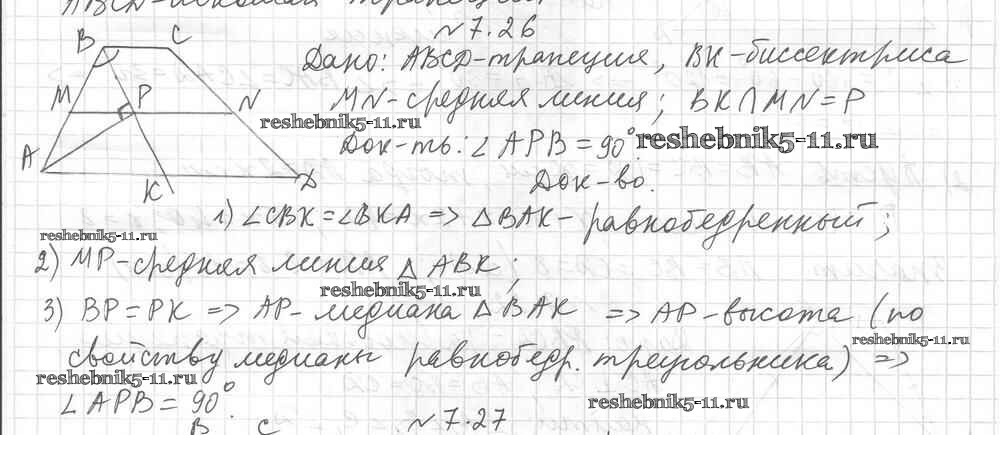 ABCD-искомая трапеция
№7.26
B C
Дано: ABCD-трапеция, BK-биссектриса
M P N
MN-средняя линия; BK∩MN=P
reshebnik5-11.ru
Док-ть: ∠APB=90°
reshebnik5-11.ru
A K D
Док-во.
1) ∠CBK=∠BKA => △BAK-равнобедренный;
reshebnik5-11.ru
2) MP-средняя линия △ABK;
reshebnik5-11.ru
3) BP=PK => AP-медиана △BAK => AP-высота (по
reshebnik5-11.ru
свойству медианы равнобедр. треугольника) =>
reshebnik5-11.ru
∠APB=90°.
reshebnik5-11.ru
B C №7.27